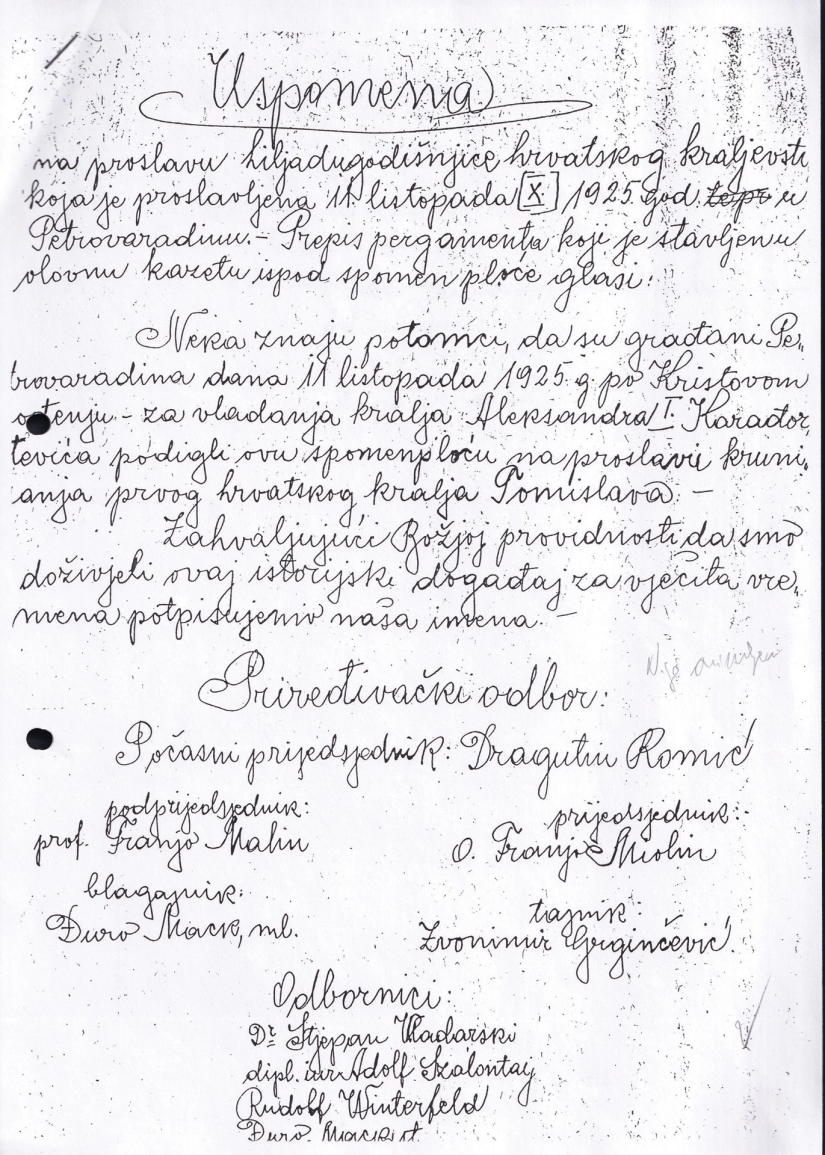 Uspomena
na proslavu hiljadugodišnjice hrvatskog kraljevst
koja je proslavljena 11 listopada [X.] 1925. god. u
Petrovaradinu. - Prepis pergamenta koji je stavljen u
olovnu kazetu ispod spomen ploče glasi:
Neka znaju potomci, da su građani Pe„
trovaradina dana 11 listopada 1925 g. po Kristovom
- za vladanja kralja Aleksandra I. Karađor„
đevića podigli ovu spomenploču na proslavu kruni„
anja prvog hrvatskog kralja Tomislava. -
Zahvaljujući Božjoj providnosti da smo
doživjeli ovaj istorijski događaj za vječita vre„
mena potpisujemo naša imena. -
Priređivački odbor:
Počasni prijedsjednik: Dragutin Romić
podprijedsjednik:
prof. Franjo Malin
prijedsjednik:
O. Franjo Miolin
blagajnik:
Đuro Mack, ml.
tajnik:
Zvonimir Grginčević.
Odbornici:
Dr. Stjepan Vladarski
dipl. iur. Adolf Szalontay
Rudolf Winterfeld
Đuro Mack st.